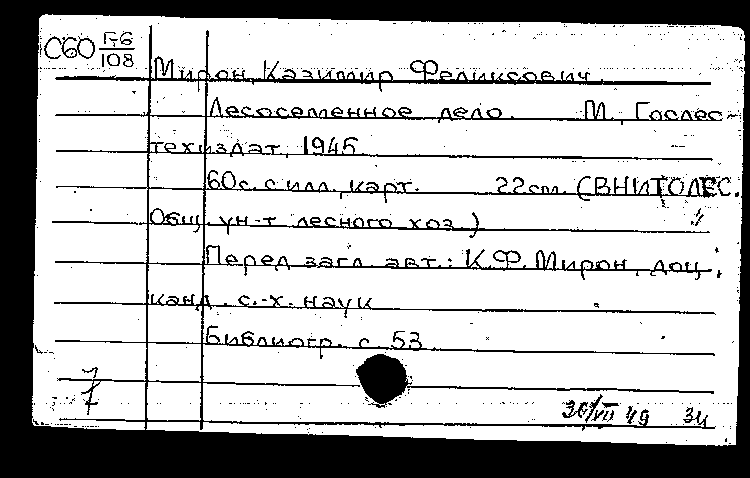 С60 Г-6/108
Мирон, Казимир Феликсович.
Лесосеменное дело. М., Гослес-
техиздат, 1945
60с. с илл., карт. 22см. (ВНИТОЛЕС.
Общ. ун-т лесного хоз.)
Перед загл. авт.: К.Ф. Мирон, доц.,
канд. с.-х. наук
Библиогр. с 53.
7
30/VII 49 34